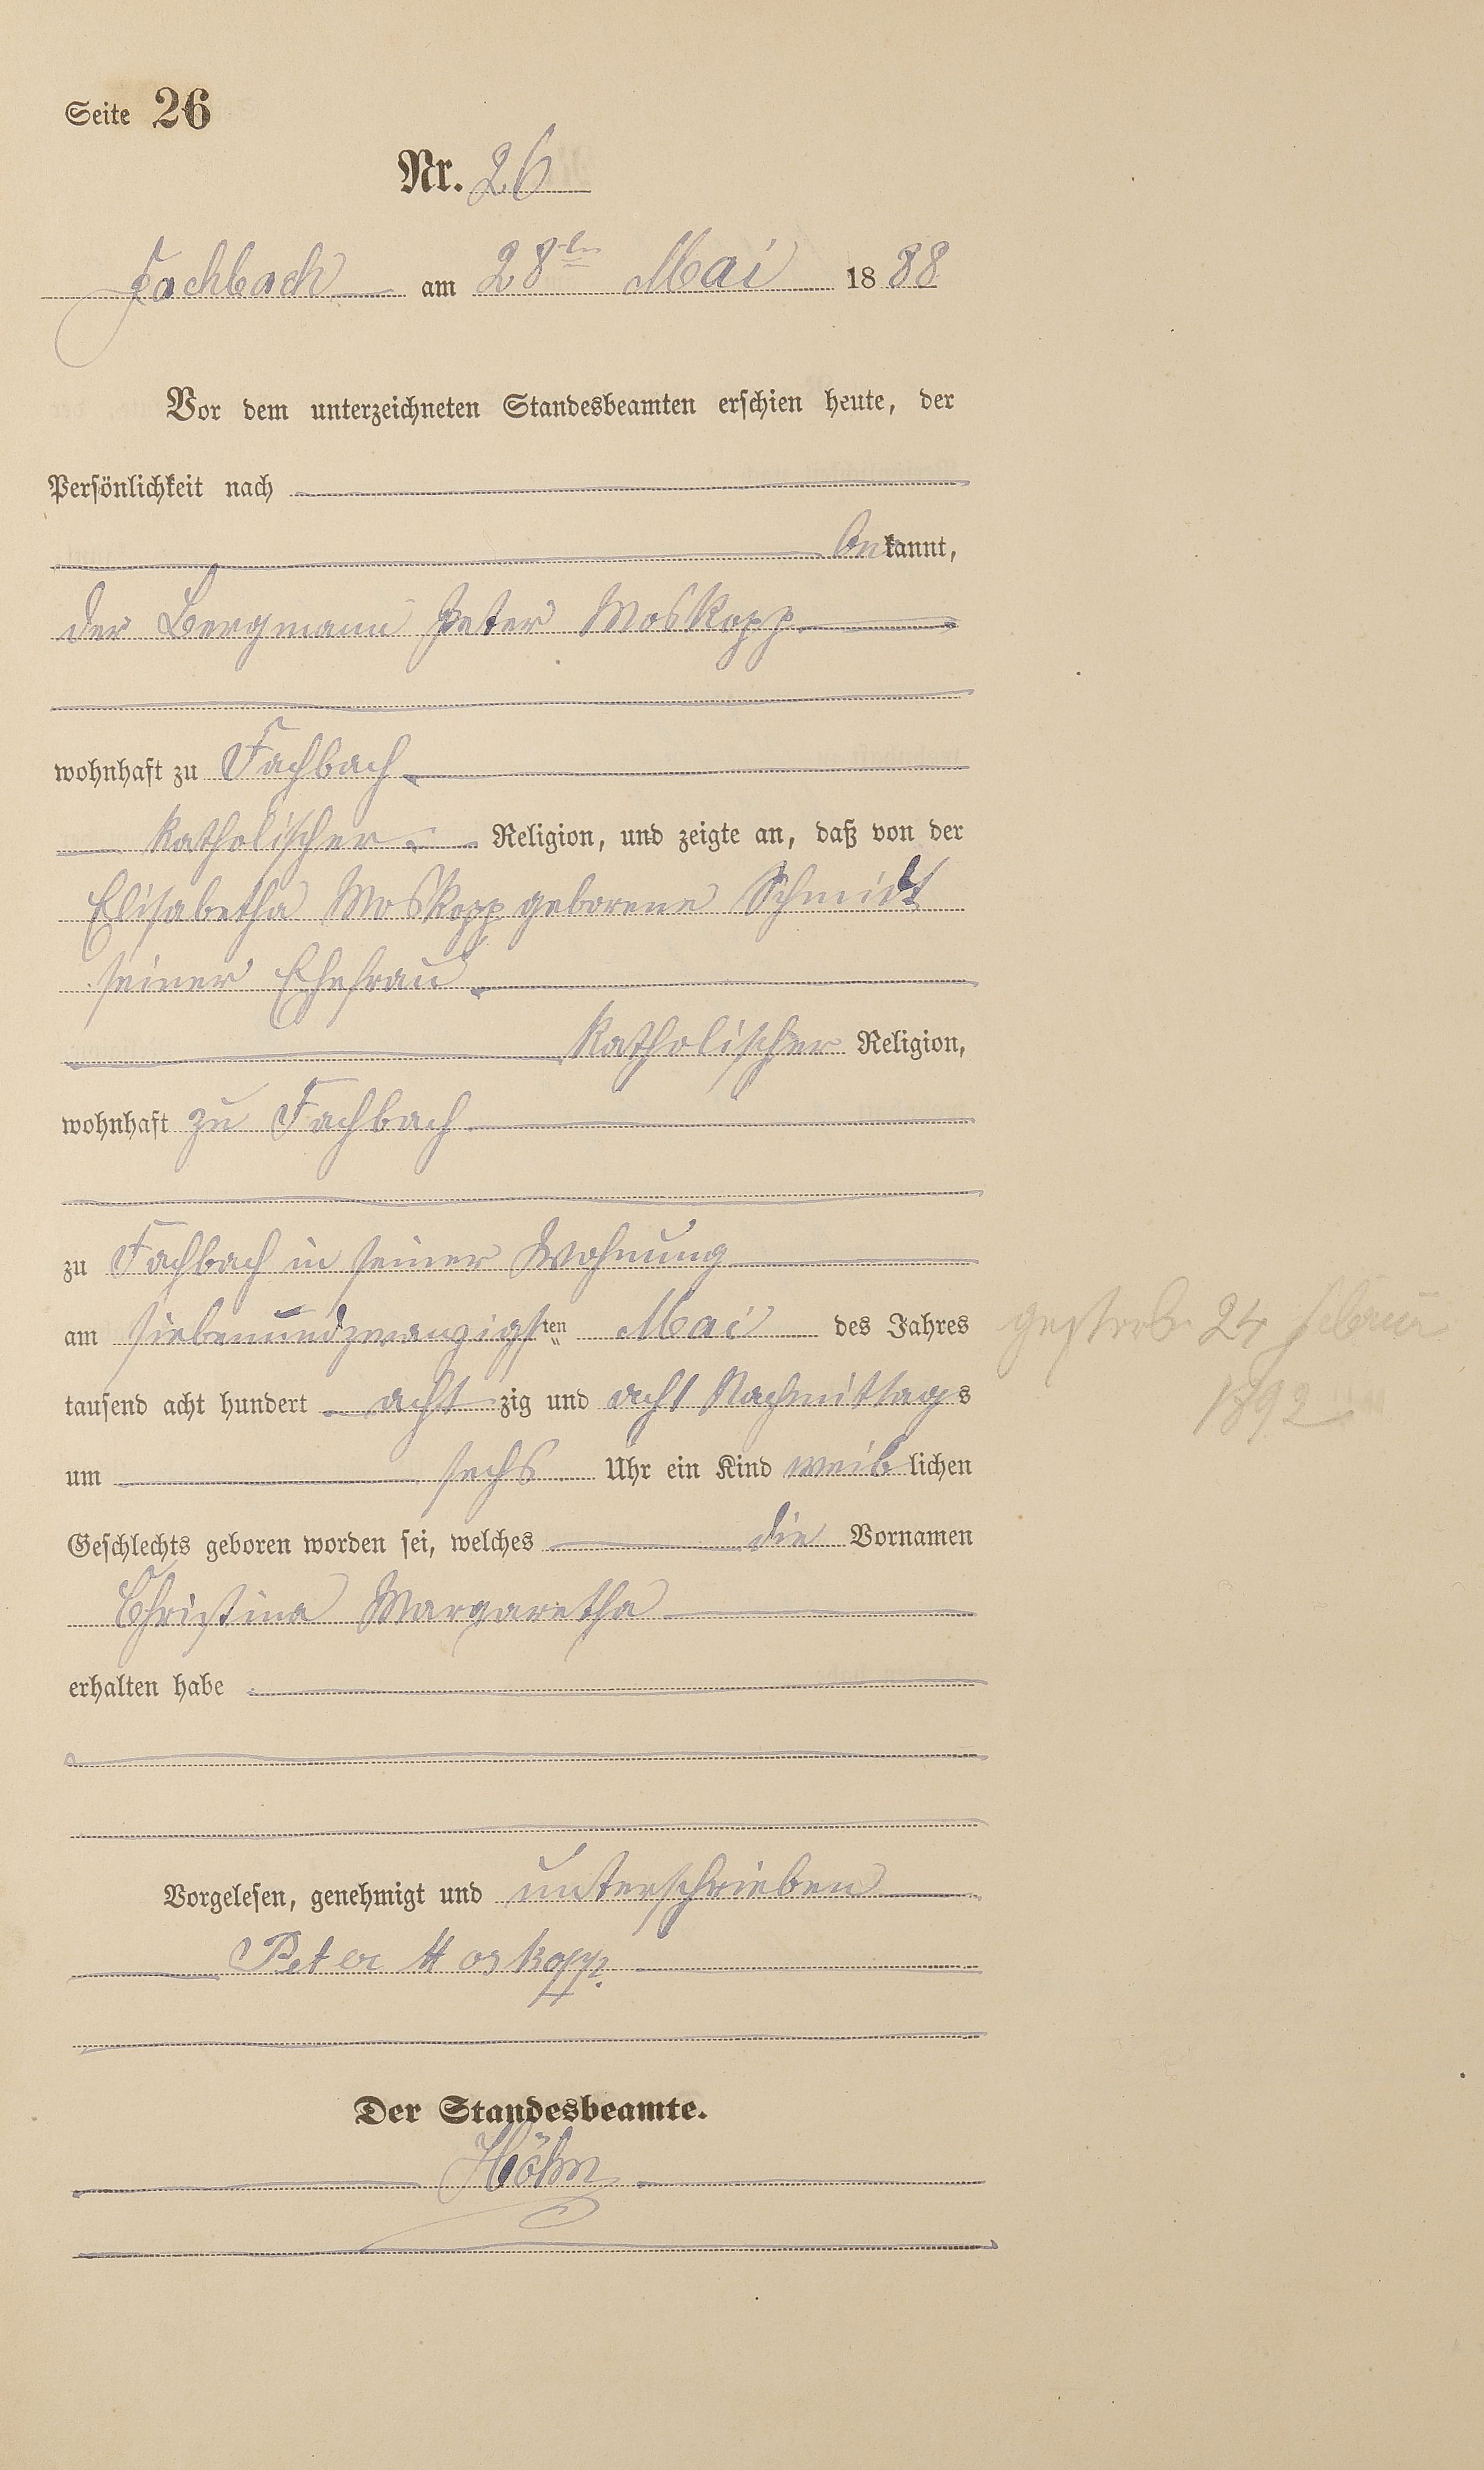 Seite 26
Nr. 26
Fachbach am 28ten Mai 1888
Vor dem unterzeichneten Standesbeamten erschien heute, der
Persönlichkeit nach
bekannt,
der Bergmann Peter Moskopp
wohnhaft zu Fachbach
katholischer Religion, und zeigte an, daß von der
Elisabetha Moskopp geborene Schmidt
seiner Ehefrau
katholischer Religion,
wohnhaft zu Fachbach
zu Fachbach in seiner Wohnung
am siebenundzwanzigsten Mai des Jahres
tausend acht hundert achtzig und acht Nachmittags
um sechs Uhr ein Kind weiblichen
Geschlechts geboren worden sei, welches die Vornamen
Christina Margaretha
erhalten habe
Vorgelesen, genehmigt und unterschrieben
Peter Moskopp.
Der Standesbeamte.
gestorb. 24
1892